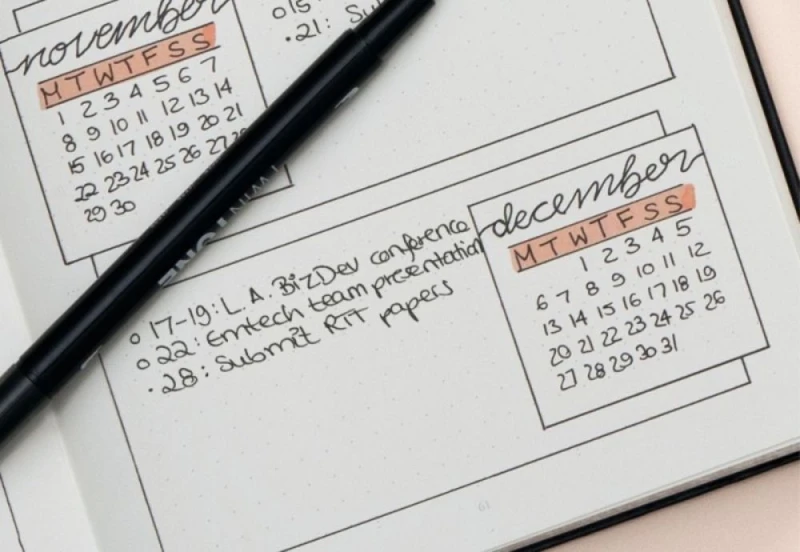 november
M T W T F S S
1 2 3 4 5 6 7
8 9 10 11 12 13 14
15 16 17 18 19 20 21
22 23 24 25 26 27
29 30
•21:
december
M T W T F S S
1 2 3 4 5
6 7 8 9 10 11 12
13 14 15 16 17 18 19
20 21 22 23 24 25 26
27 28 29 30 31
o 17-19: L.A. BizDev conference
o 22: Emtech team presentation
•28: Submit RIT papers
61